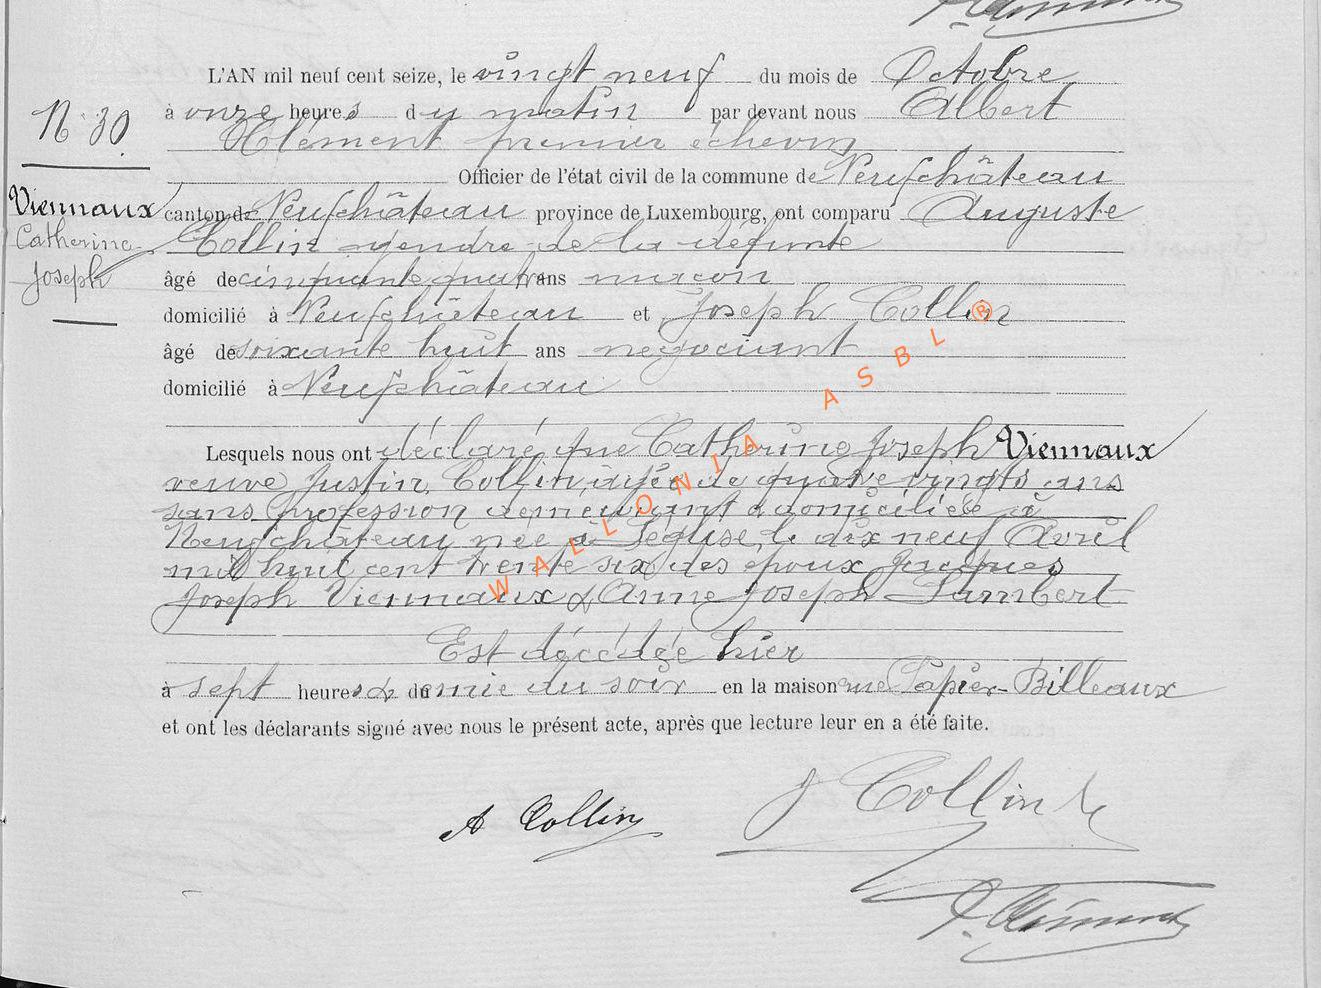 L'AN mil neuf cent seize, le vingt neuf du mois de Octobre
N° 30
à onze heures du matin par devant nous Albert
Clément premier échevin
Officier de l'état civil de la commune de Neufchâteau
Viennaux
Catherine
Joseph
canton de Neufchâteau province de Luxembourg, ont comparu Auguste
Collin gendre de la défunte
âgé de cinquante quatre ans maçon
domicilié à Neufchâteau et Joseph Collin
âgé de soixante huit ans négociant
domicilié à Neufchâteau
Lesquels nous ont déclaré que Catherine Joseph Viennaux
veuve Justin Collin, âgée de quatre vingts ans
sans profession demeurant & domiciliée à
Neufchâteau née à Léglise, le dix neuf Avril
mil huit cent trente six des époux Jacques
Joseph Viennaux & Anne Joseph Lambert
Est décédée hier
à sept heures & demie du soir en la maison rue Papier-Billeaux
et ont les déclarants signé avec nous le présent acte, après que lecture leur en a été faite.
A Collin
J Collin
A. Clément
WALLONIA ASBL ®